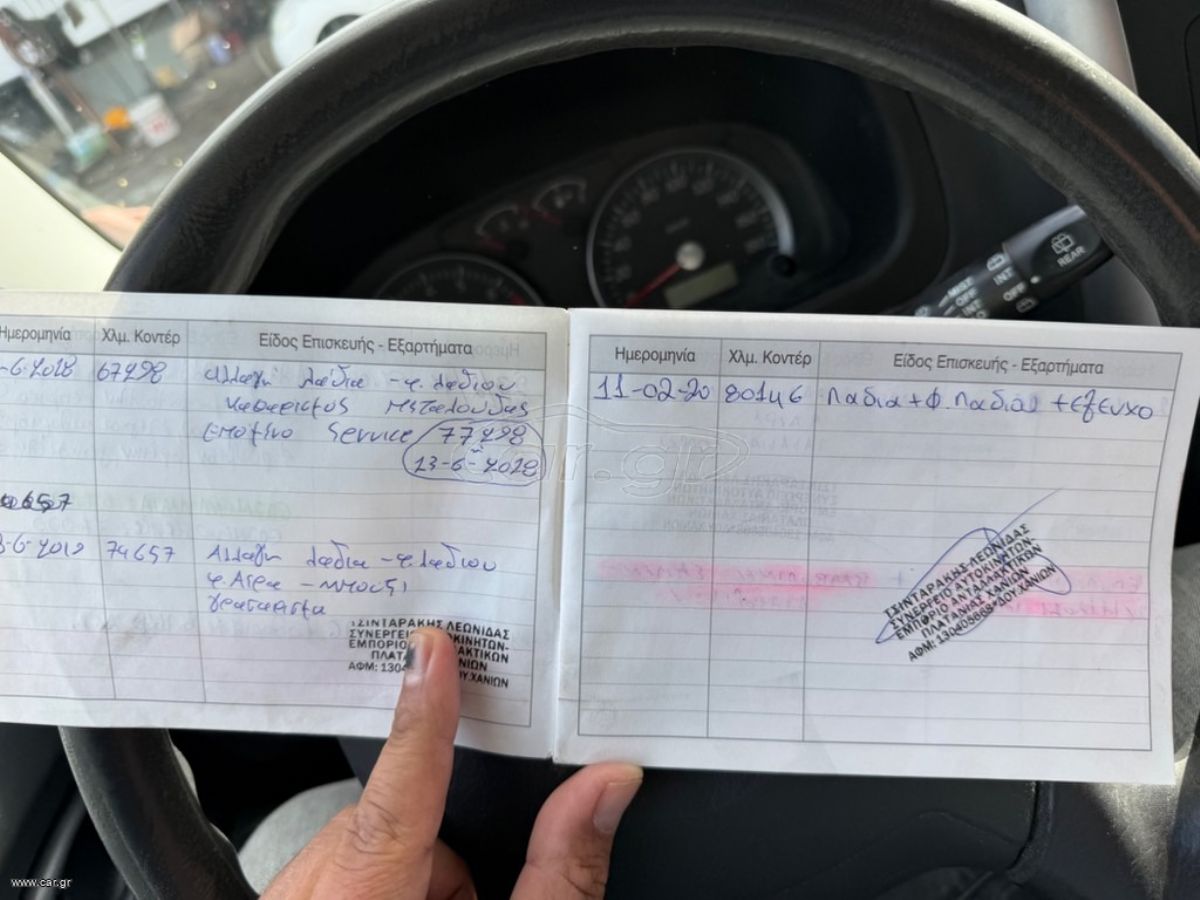 REAR
MIST
OFF
INT
INT
OFF
Ημερομηνία Χλμ. Κοντέρ Είδος Επισκευής - Εξαρτήματα
-6-2018 67298 Αλλαγη λαδια - φ. λαδιου
καθαρισμος πεταλουδας
επομενο service 77298
13-6-2018
74657
3-6-2019 74657 Αλλαγη λαδια - φ. λαδιου
φ. Αερα - μπουζι
γρασαρισμα
ΤΣΙΝΤΑΡΑΚΗΣ ΛΕΩΝΙΔΑΣ
ΣΥΝΕΡΓΕΙ ΟΚΙΝΗΤΩΝ-
ΕΜΠΟΡΙΟ ΛΑΚΤΙΚΩΝ
ΠΛΑΤΑ ΝΙΩΝ
ΑΦΜ: 1304 ΟΥ.ΧΑΝΙΩΝ
Ημερομηνία Χλμ. Κοντέρ Είδος Επισκευής - Εξαρτήματα
11-02-20 80146 Λαδια + Φ. Λαδιου + ελενχο
ΤΣΙΝΤΑΡΑΚΗΣ ΛΕΩΝΙΔΑΣ
ΣΥΝΕΡΓΕΙΟ ΑΥΤΟΚΙΝΗΤΩΝ-
ΕΜΠΟΡΙΟ ΑΝΤΑΛΛΑΚΤΙΚΩΝ
ΠΛΑΤΑΝΙΑΣ ΧΑΝΙΩΝ
ΑΦΜ: 130405668*ΔΟΥ.ΧΑΝΙΩΝ
car.gr
www.car.gr